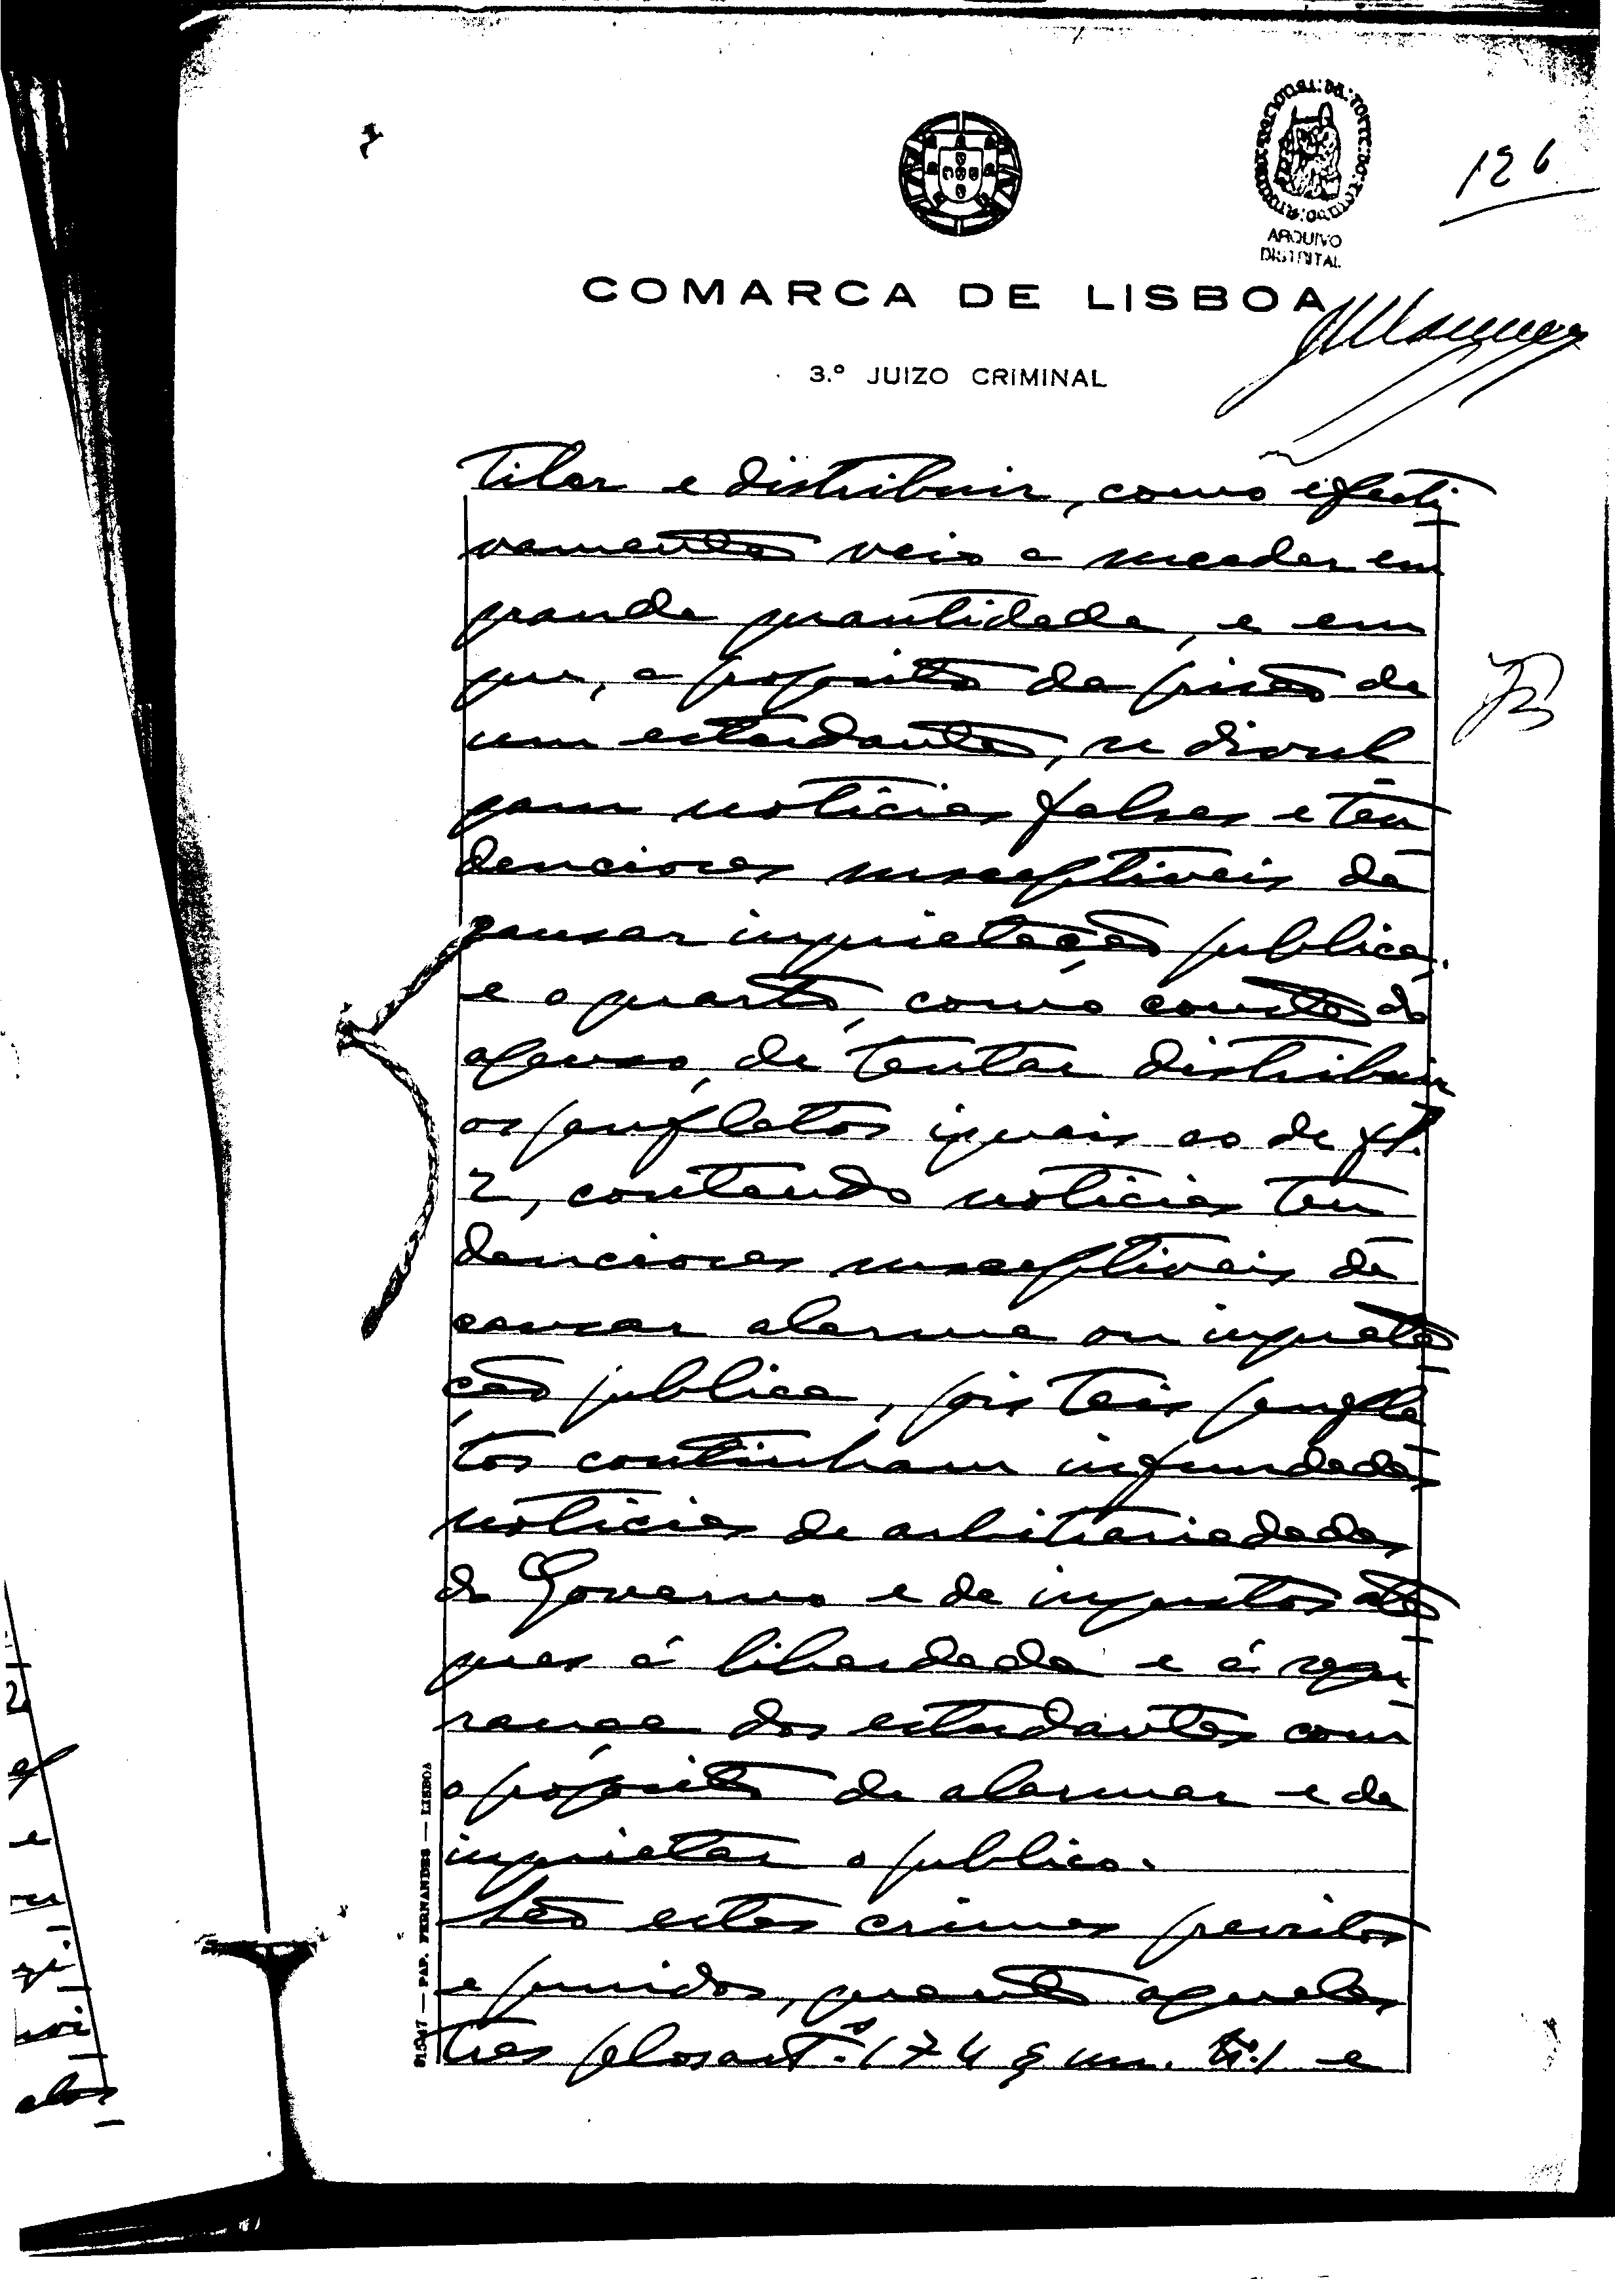 126
ARQUIVO
DISTRITAL
COMARCA DE LISBOA
3.º JUIZO CRIMINAL
tilar e distribuir, como efecti
vamente veio a suceder em
grande quantidade, e em
que, a proposito da prisão de
um estudante, se divul
gam noticias falsas e ten
denciosas susceptiveis de
causar inquietação publica.
e o quarto, como consta do
apenso, de tentar distribuir
os panfletos iguais ao de fl.
2, contendo noticias ten
denciosas susceptiveis de
causar alarme ou inquieta
ção publica, pois tais panfle
tos continham infundadas
noticias de arbitrariedades
do Governo e de injustos ata
ques á liberdade e á segu
rança dos estudantes com
o proposito de alarmar e de
inquietar o publico.
São estes crimes previstos
e punidos, quanto aqueles
tres pelos art.ºs 174 § un. n.º 1 e
PAP. FERNANDES — LISBOA